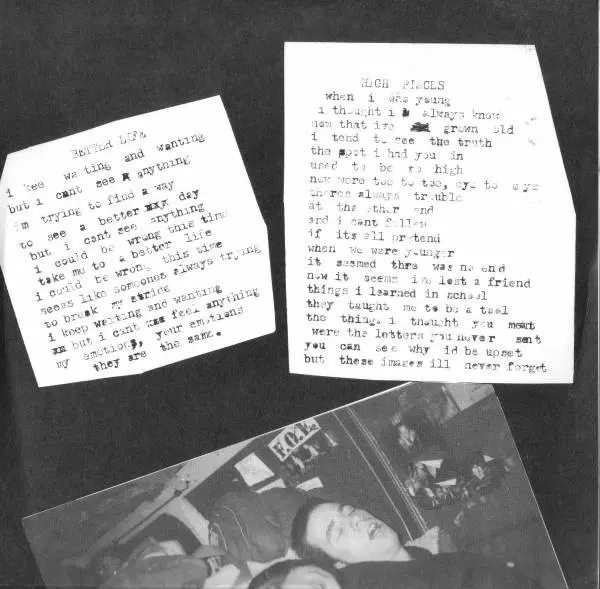 BETTER LIFE
i kee wa ting and wanting
but i cant see anything
im trying to find a way
to see a better day
but i cant see anything
i could be wrong this time
take me to a better life
i could be wrong this time
seems like someones always trying
to break my stride
i keep waiting and wanting
but i cant feel anything
my emotions, your emotions
they are the same.
HIGH PLACES
when i was young
i thought i always knew
now that ive grown old
i tend to see the truth
the spot i had you in
used to be so high
now were toe to toe, eye to eye
theres always trouble
at the other end
and i cant follow
if its all pretend
when we were younger
it seemed thre was no end
now it seems ive lost a friend
things i learned in school
they taught me to be a tool
the things i thought you meant
were the letters you never sent
you can see why id be upset
but these images ill never forget